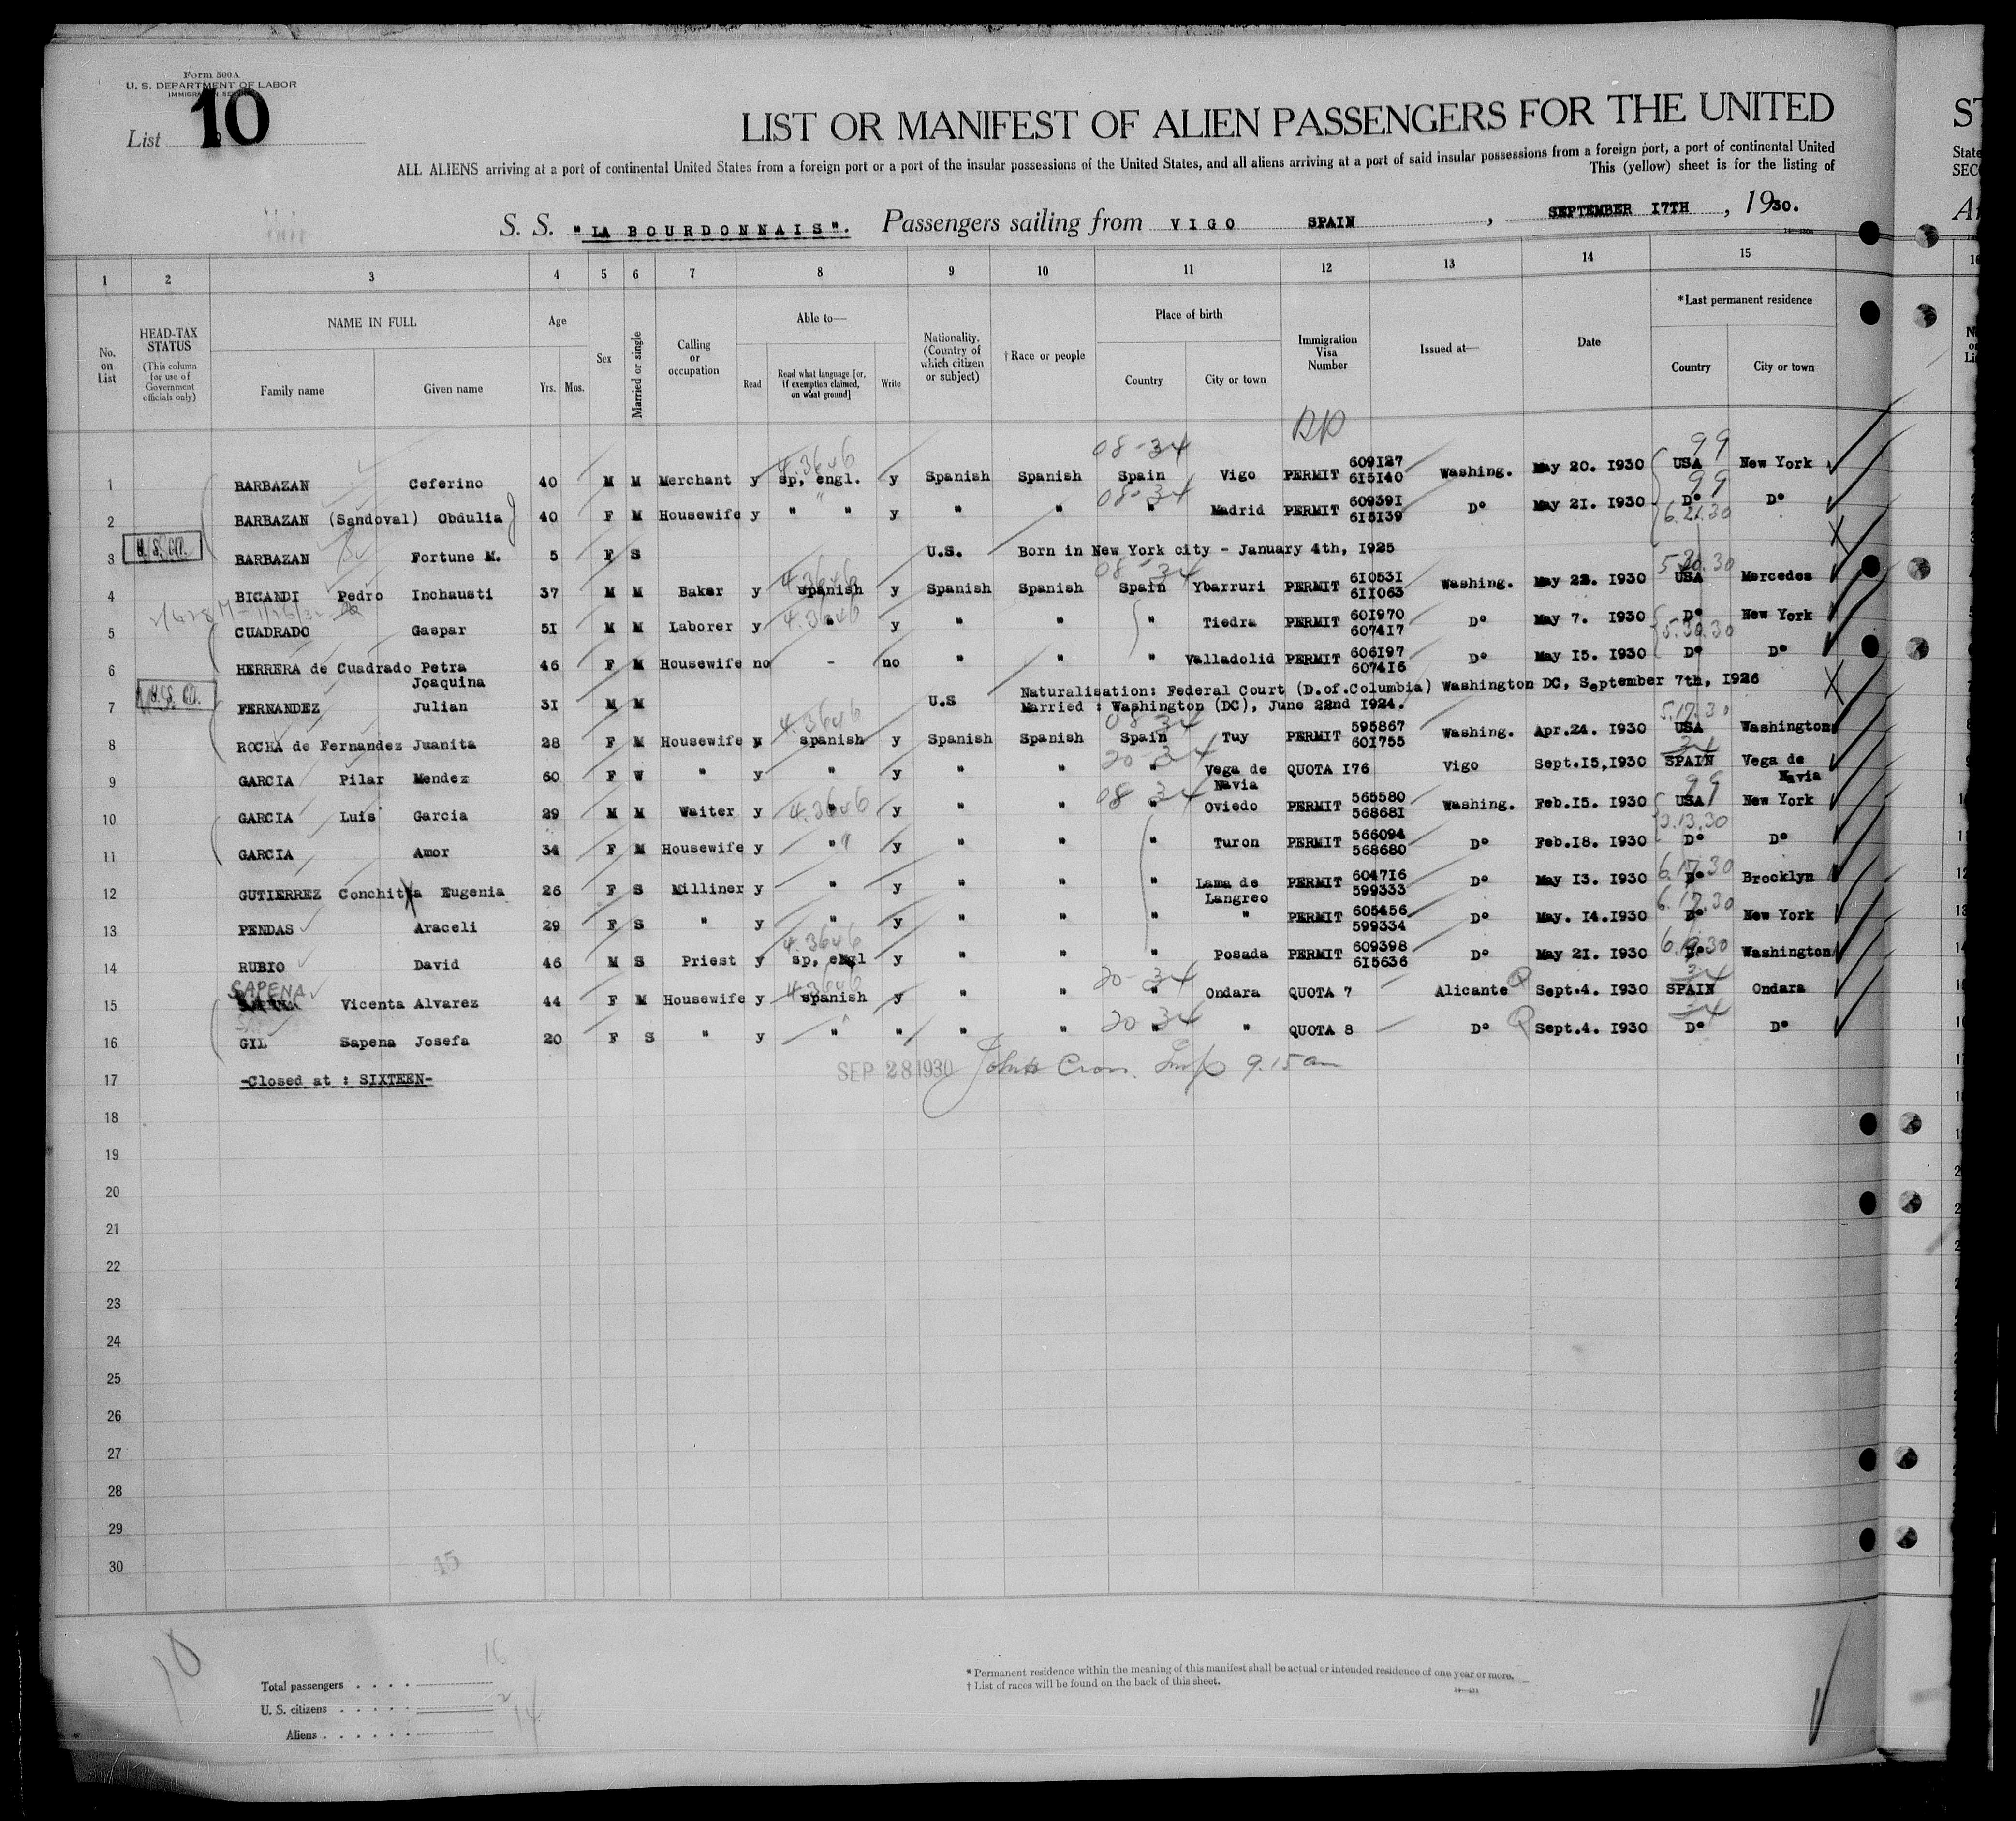 Form 500A
U. S. DEPARTMENT OF LABOR
IMMIGRATION SERVICE
List 10
LIST OR MANIFEST OF ALIEN PASSENGERS FOR THE UNITED
ALL ALIENS arriving at a port of continental United States from a foreign port or a port of the insular possessions of the United States, and all aliens arriving at a port of said insular possessions from a foreign port, a port of continental United
This (yellow) sheet is for the listing of
S. S. "LA BOURDONNAIS". Passengers sailing from VIGO SPAIN , SEPTEMBER 17TH , 1930.
1 2 3 4 5 6 7 8 9 10 11 12 13 14 15
No. on List
HEAD-TAX STATUS
(This column for use of Government officials only)
NAME IN FULL
Family name Given name
Age
Yrs. Mos.
Sex
Married or single
Calling or occupation
Able to—
Read
Read what language [or, if exemption claimed, on what ground]
Write
Nationality. (Country of which citizen or subject)
†Race or people
Place of birth
Country City or town
Immigration Visa Number
Issued at—
Date
*Last permanent residence
Country City or town
1 BARBAZAN Ceferino 40 M M Merchant y sp, engl. y Spanish Spanish Spain Vigo PERMIT 609127 615140 Washing. May 20. 1930 USA New York
2 BARBAZAN (Sandoval) Obdulia 40 F M Housewife y " " y " " " Madrid PERMIT 609391 615139 D° May 21. 1930 D° D°
3 BARBAZAN Fortune M. 5 F S U.S. Born in New York city - January 4th, 1925
4 BICANDI Pedro Inchausti 37 M M Baker y spanish y Spanish Spanish Spain Ybarruri PERMIT 610531 611063 Washing. May 22. 1930 USA Mercedes
5 CUADRADO Gaspar 51 M M Laborer y " y " " " Tiedra PERMIT 601970 607417 D° May 7. 1930 D° New York
6 HERRERA de Cuadrado Petra Joaquina 46 F M Housewife no - no " " " Valladolid PERMIT 606197 607416 D° May 15. 1930 D° D°
7 FERNANDEZ Julian 31 M M U.S Naturalisation: Federal Court (D.of.Columbia) Washington DC, September 7th, 1926
Married : Washington (DC), June 22nd 1924.
8 ROCHA de Fernandez Juanita 28 F M Housewife y spanish y Spanish Spanish Spain Tuy PERMIT 595867 601755 Washing. Apr.24. 1930 USA Washington
9 GARCIA Pilar Mendez 60 F W " y " y " " " Vega de Navia QUOTA 176 Vigo Sept.15,1930 SPAIN Vega de Navia
10 GARCIA Luis Garcia 29 M M Waiter y " y " " " Oviedo PERMIT 565580 568681 Washing. Feb.15. 1930 USA New York
11 GARCIA Amor 34 F M Housewife y " y " " " Turon PERMIT 566094 568680 D° Feb.18. 1930 D° D°
12 GUTIERREZ Conchita Eugenia 26 F S Milliner y " y " " " Lama de Langreo PERMIT 604716 599333 D° May 13. 1930 D° Brooklyn
13 PENDAS Araceli 29 F S " y " y " " " " PERMIT 605456 599334 D° May. 14.1930 D° New York
14 RUBIO David 46 M S Priest y sp, engl y " " " Posada PERMIT 609398 615636 D° May 21. 1930 D° Washington
15 SAPENA Vicenta Alvarez 44 F M Housewife y spanish y " " " Ondara QUOTA 7 Alicante Sept.4. 1930 SPAIN Ondara
16 GIL Sapena Josefa 20 F S " y " " " " " " QUOTA 8 D° Sept.4. 1930 D° D°
17 -Closed at : SIXTEEN-
SEP 28 1930 9.15 am
18
19
20
21
22
23
24
25
26
27
28
29
30
10
Total passengers . . . . 16
U. S. citizens . . . . . 2
Aliens . . . . . . 14
* Permanent residence within the meaning of this manifest shall be actual or intended residence of one year or more.
† List of races will be found on the back of this sheet.